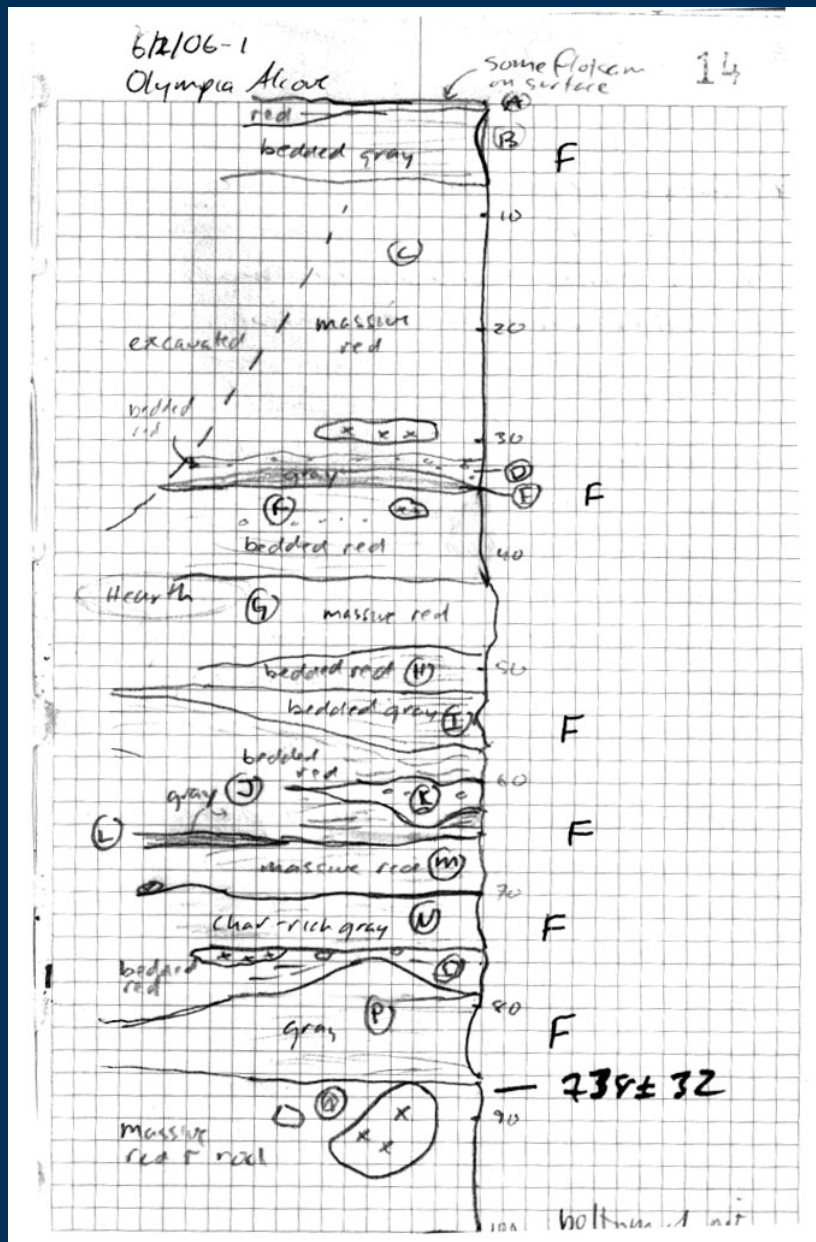 6/2/06-1
Olympia Alcove
some flotsam
on surface
14
A
red
B
bedded gray
F
10
C
massive
red
20
excavated
bedded
red
30
gray
D
E
F
F
bedded red
40
Hearth
G
massive red
bedded red H
50
bedded gray I
F
bedded
red
60
J
gray
K
L
F
massive red M
70
char-rich gray N
F
bedded
red
O
80
gray P
F
738 ± 32
90
massive
red
100
not